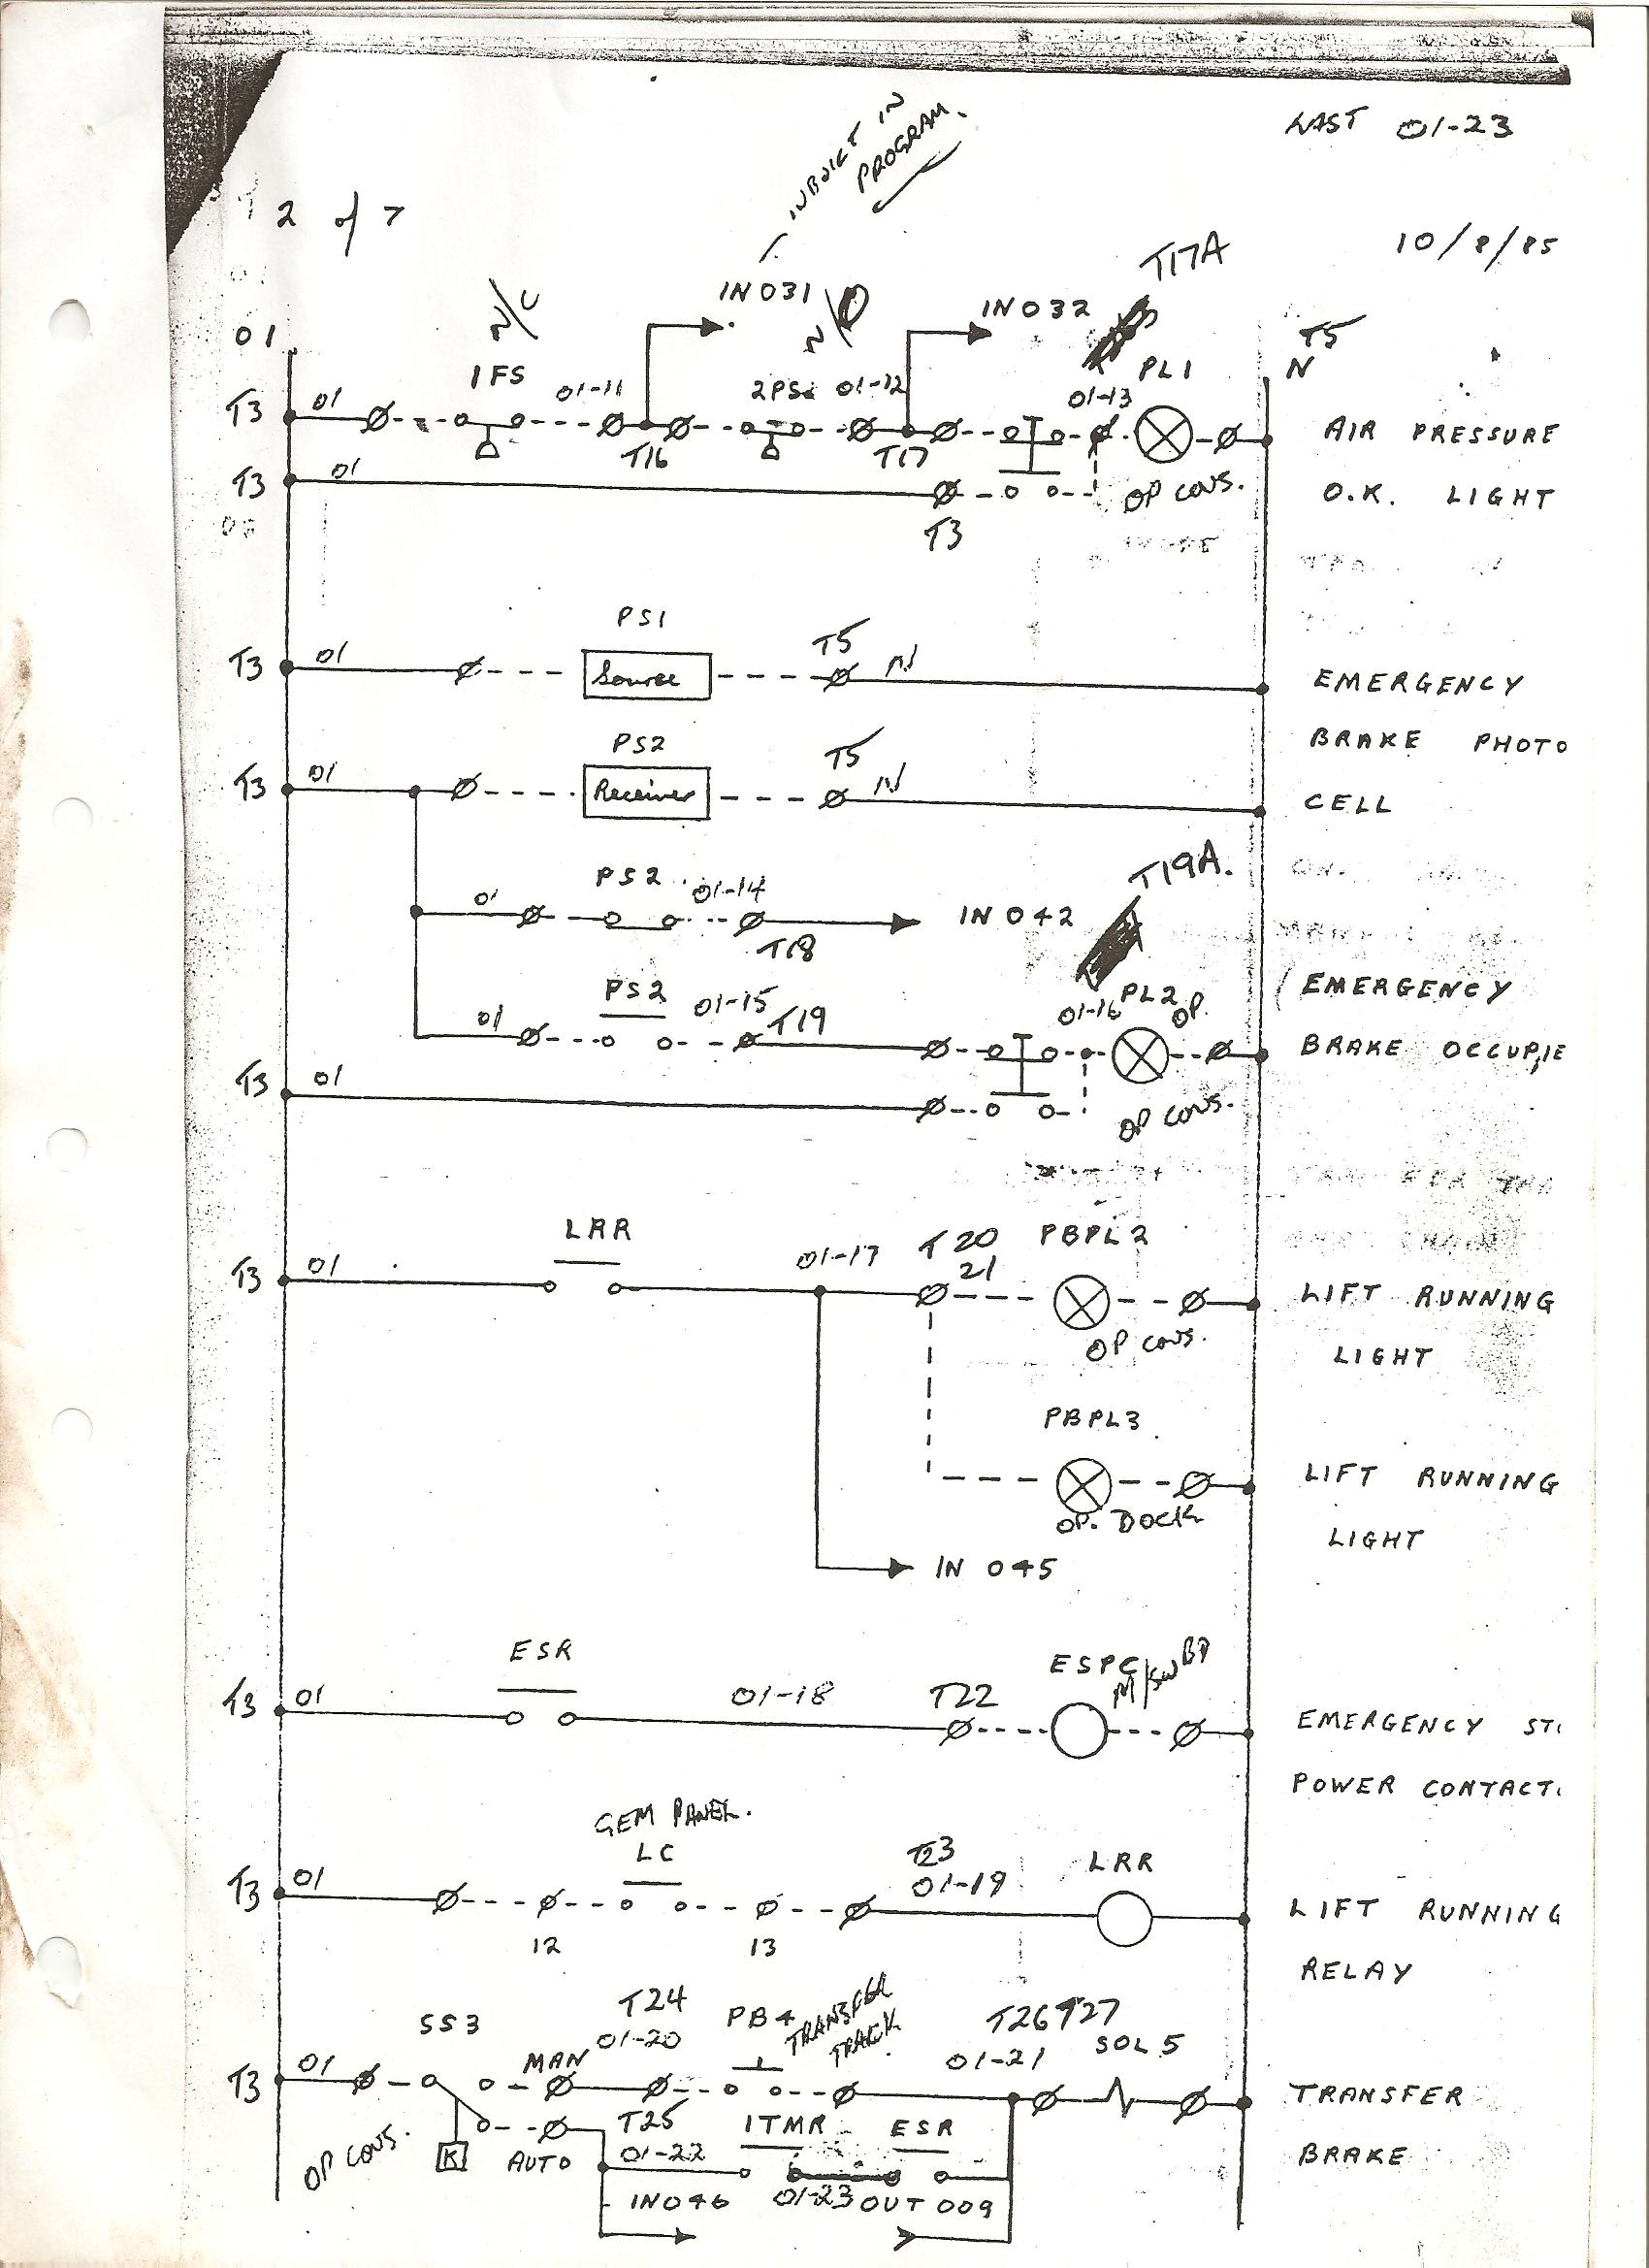 LAST 01-23
INBUILT IN
PROGRAM.
2 of 7
10/8/85
T17A
IN 031
N/C
N/O
IN 032
T5
01
1FS
PL1
N
T3 01
01-11
2PS2
01-12
01-13
AIR PRESSURE
T16
T17
T3 01
OP CONS.
O.K. LIGHT
T3
PS1
T3 01
Source
T5
N
EMERGENCY
BRAKE PHOTO
PS2
T3 01
Receiver
T5
N
CELL
T19A.
PS2
01 01-14
IN 042
T18
PS2
01-15
01-16 PL2 OP.
EMERGENCY
01
T19
BRAKE OCCUPIE
T3 01
OP CONS.
LRR
T20
21
PBPL2
T3 01
01-17
LIFT RUNNING
OP CONS.
LIGHT
PBPL3
LIFT RUNNING
OP. DOCK
LIGHT
IN 045
ESR
ESPC
M/SWBD
T3 01
01-18
T22
EMERGENCY STO
POWER CONTACT
GEM PANEL.
LC
T23
01-19
LRR
T3 01
LIFT RUNNING
12
13
RELAY
SS3
T24
01-20
PB4
TRANSFER
TRACK
T26 T27
01-21
SOL 5
T3 01
MAN
TRANSFER
T25
ITMR
ESR
OP CONS.
K
AUTO
01-22
BRAKE
IN046
01-23
OUT 009